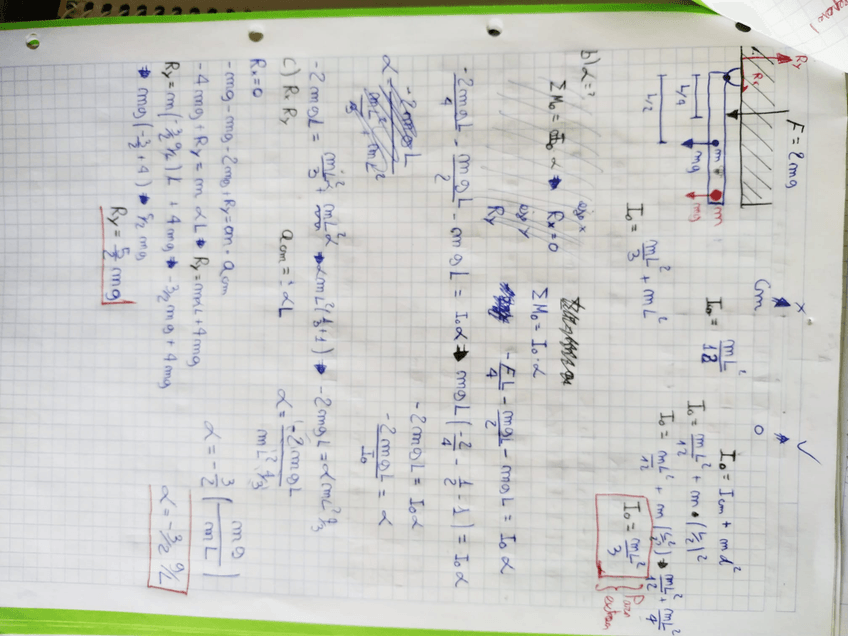 F = 2mg
Ry
Rx
L/4
L/2
m
mg
m
mg
x =
cm
I₀ = mL²/12
I₀ = Icm + md²
I₀ = mL²/12 + m·(L/2)²
I₀ = mL²/12 + m(L²/2²) → mL²/12 + mL²/4
I₀ = mL²/3
I₀ = mL²/3 + mL²
b) α = ?
ΣM₀ = I₀ α → Rx = 0
Ry
ΣM₀ = I₀ · α
-FL/4 - mgL/2 - mgL = I₀ α
-2mgL/4 - mgL/2 - mgL = I₀α → mgL(-2/4 - 1/2 - 1) = I₀ α
-2mgL = I₀α
-2mgL/I₀ = α
α = -2mgL / mL²/3 + mL²
-2mgL = mL²α/3 + mL²α → αmL²(1/3 + 1) → -2mgL = αmL² 4/3
α = -2mgL / mL² 4/3
α = -3/2 (mg/mL)
α = -3/2 g/L
c) Rx Ry
acm = ? αL
Rx = 0
-mg - mg - 2mg + Ry = m · acm
-4mg + Ry = m αL → Ry = mαL + 4mg
Ry = m(-3/2 g/L)L + 4mg → -3/2 mg + 4mg
→ mg(-3/2 + 4) → 5/2 mg
Ry = 5/2 mg